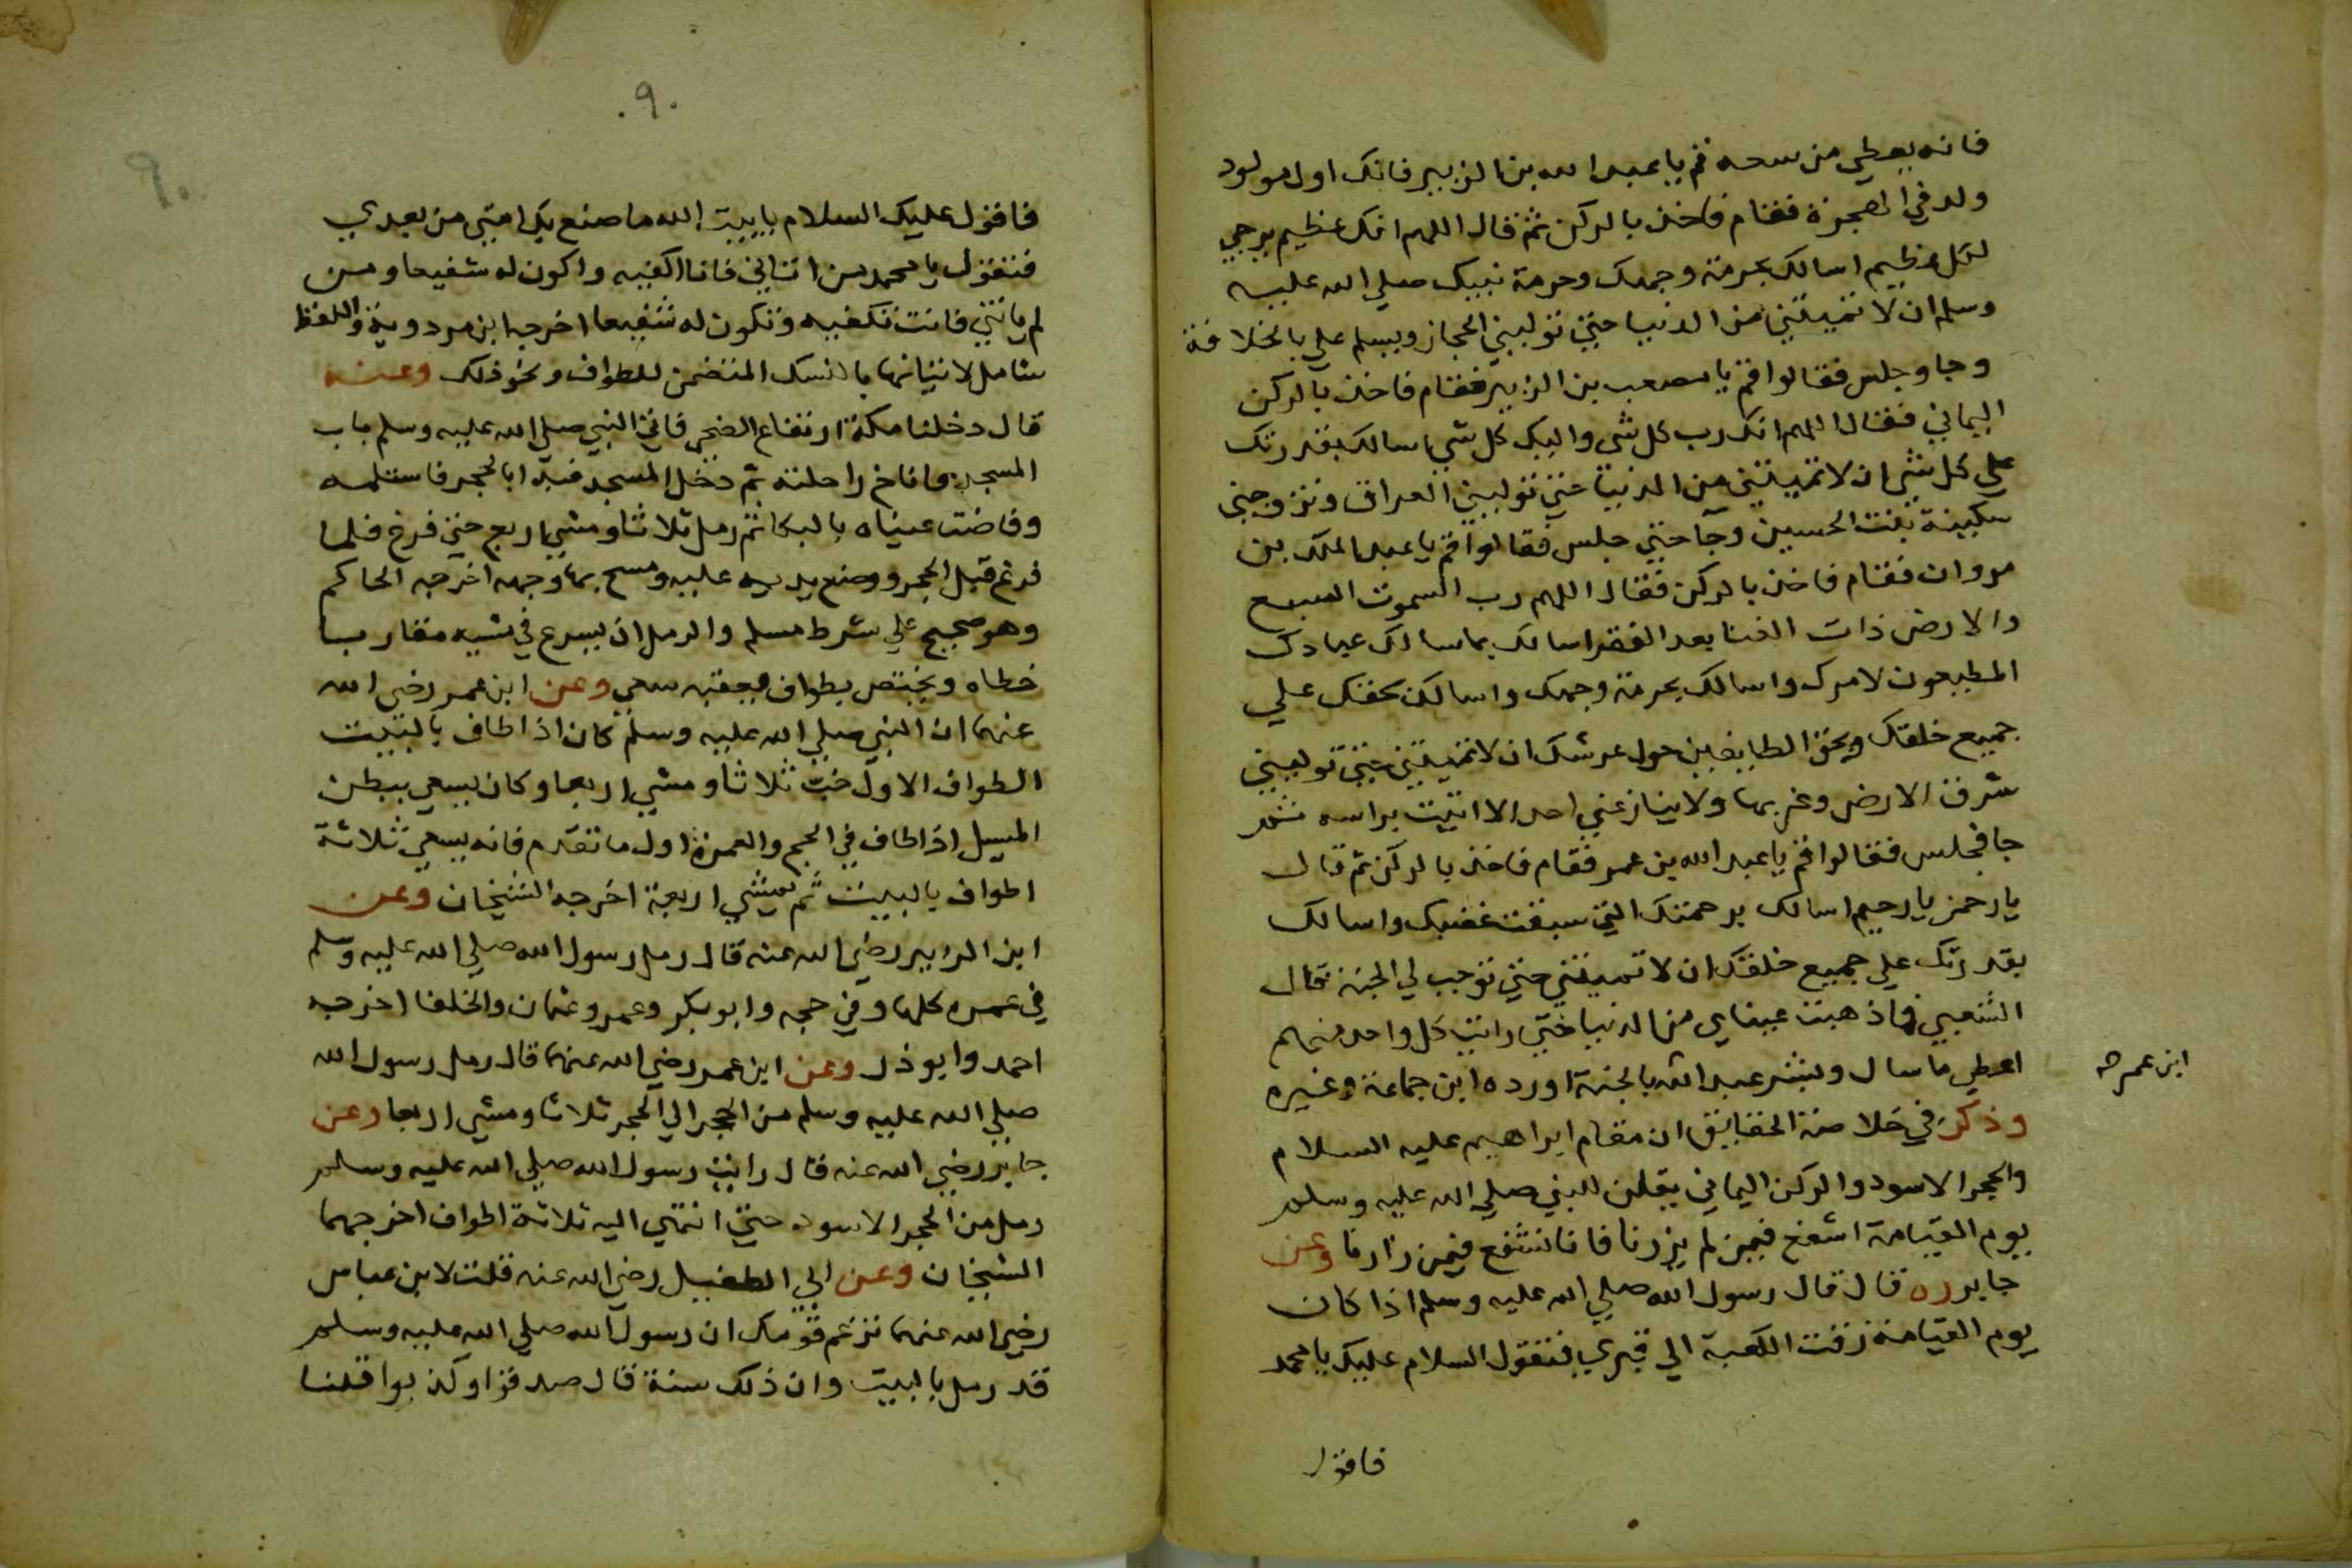 فانه يعطي من سعه قم يا عبد الله بن الزبير فانك اول مولود
ولد في الهجرة فقام فاخذ بالركن ثم قال اللهم انك عظيم يرجي
لكل عظيم اسالك بحرمة وجهك وحرمة نبيك صلي الله عليه
وسلم ان لا تميتني من الدنيا حتي توليني الحجاز ويسلم علي بالخلافة
وجا وجلس فقالوا قم يا مصعب بن الزبير فقام فاخذ بالركن
اليماني فقال اللهم انك رب كل شي واليك كل شي اسالك بقدرتك
علي كل شي ان لا تميتني من الدنيا حتي توليني العراق وتزوجني
سكينة بنت الحسين وجآ حتي جلس فقالوا قم يا عبد الملك بن
مروان فقام فاخذ بالركن فقال اللهم رب السموت السبع
والارض ذات النبا بعد الفقر اسالك بما سالك عبادك
المطيعون لامرك واسالك بحرمة وجهك واسالك بحقك علي
جميع خلقك وبحق الطايفين حول عرشك ان لا تميتني حتي توليني
شرق الارض وغربها ولا ينازعني احد الا اتيت براسه ثم
جا فجلس فقالوا قم يا عبد الله بن عمر فقام فاخذ بالركن ثم قال
يا رحمن يا رحيم اسالك برحمتك التي سبقت غضبك واسالك
بقدرتك علي جميع خلقك ان لا تميتني حتي توجب لي الجنة قال
الشعبي فما ذهبت عيناي من الدنيا حتي رايت كل واحد منهم
اعطي ما سال وبشر عبد الله بالجنة اورده ابن جماعة وغيره
ابن عمر صح
وذكر في خلاصة الحقايق ان مقام ابراهيم عليه السلام
والحجر الاسود والركن اليماني يقلن للنبي صلي الله عليه وسلم
يوم القيامة اشفع فيمن لم يزرنا فانا نشفع فيمن زارنا وعن
جابر ره قال قال رسول الله صلي الله عليه وسلم اذا كان
يوم القيامة زفت الكعبة الي قبري فتقول السلام عليك يا محمد
فاقول
٩٠
٩٠
فاقول عليك السلام يا بيت الله ما صنع بك امتي من بعدي
فتقول يا محمد من اتاني فانا اكفيه واكون له شفيعا ومن
لم ياتني فانت تكفيه وتكون له شفيعا اخرجه ابن مردوية واللفظ
شامل لاتيانها بالنسك المتضمن للطواف ونحو ذلك وعنه
قال دخلنا مكة ارتفاع الضحي فاتي النبي صلي الله عليه وسلم باب
المسجد فاناخ راحلته ثم دخل المسجد فبدا بالحجر فاستلمه
وفاضت عيناه بالبكا ثم رمل ثلاثا ومشي اربع حتي فرغ فلما
فرغ قبل الحجر ووضع يديه عليه ومسح بها وجهه اخرجه الحاكم
وهو صحيح علي شرط مسلم والرمل ان يسرع في مشيه مقاربا
خطاه ويختص بطواف يعقبه سعي وعن ابن عمر رضي الله
عنهما ان النبي صلي الله عليه وسلم كان اذا طاف بالبيت
الطواف الاول خبّ ثلاثا ومشي اربعا وكان يسعي ببطن
المسيل اذا طاف في الحج والعمرة اول ما تقدم فانه يسعي ثلاثة
اطواف بالبيت ثم يمشي اربعة اخرجه الشيخان وعن
ابن الزبير رضي الله عنه قال رمل رسول الله صلي الله عليه وسلم
في عمره كلها وفي حجه وابو بكر وعمر وعثمان والخلفا اخرجه
احمد وابو ذر وعن ابن عمر رضي الله عنهما قال رمل رسول الله
صلي الله عليه وسلم من الحجر الي الحجر ثلاثا ومشي اربعا وعن
جابر رضي الله عنه قال رايت رسول الله صلي الله عليه وسلم
رمل من الحجر الاسود حتي انتهي اليه ثلاثة اطواف اخرجهما
الشيخان وعن ابي الطفيل رضي الله عنه قلت لابن عباس
رضي الله عنهما تزعم قومك ان رسول الله صلي الله عليه وسلم
قد رمل بالبيت وان ذلك سنة قال صدقوا وكذبوا قلنا